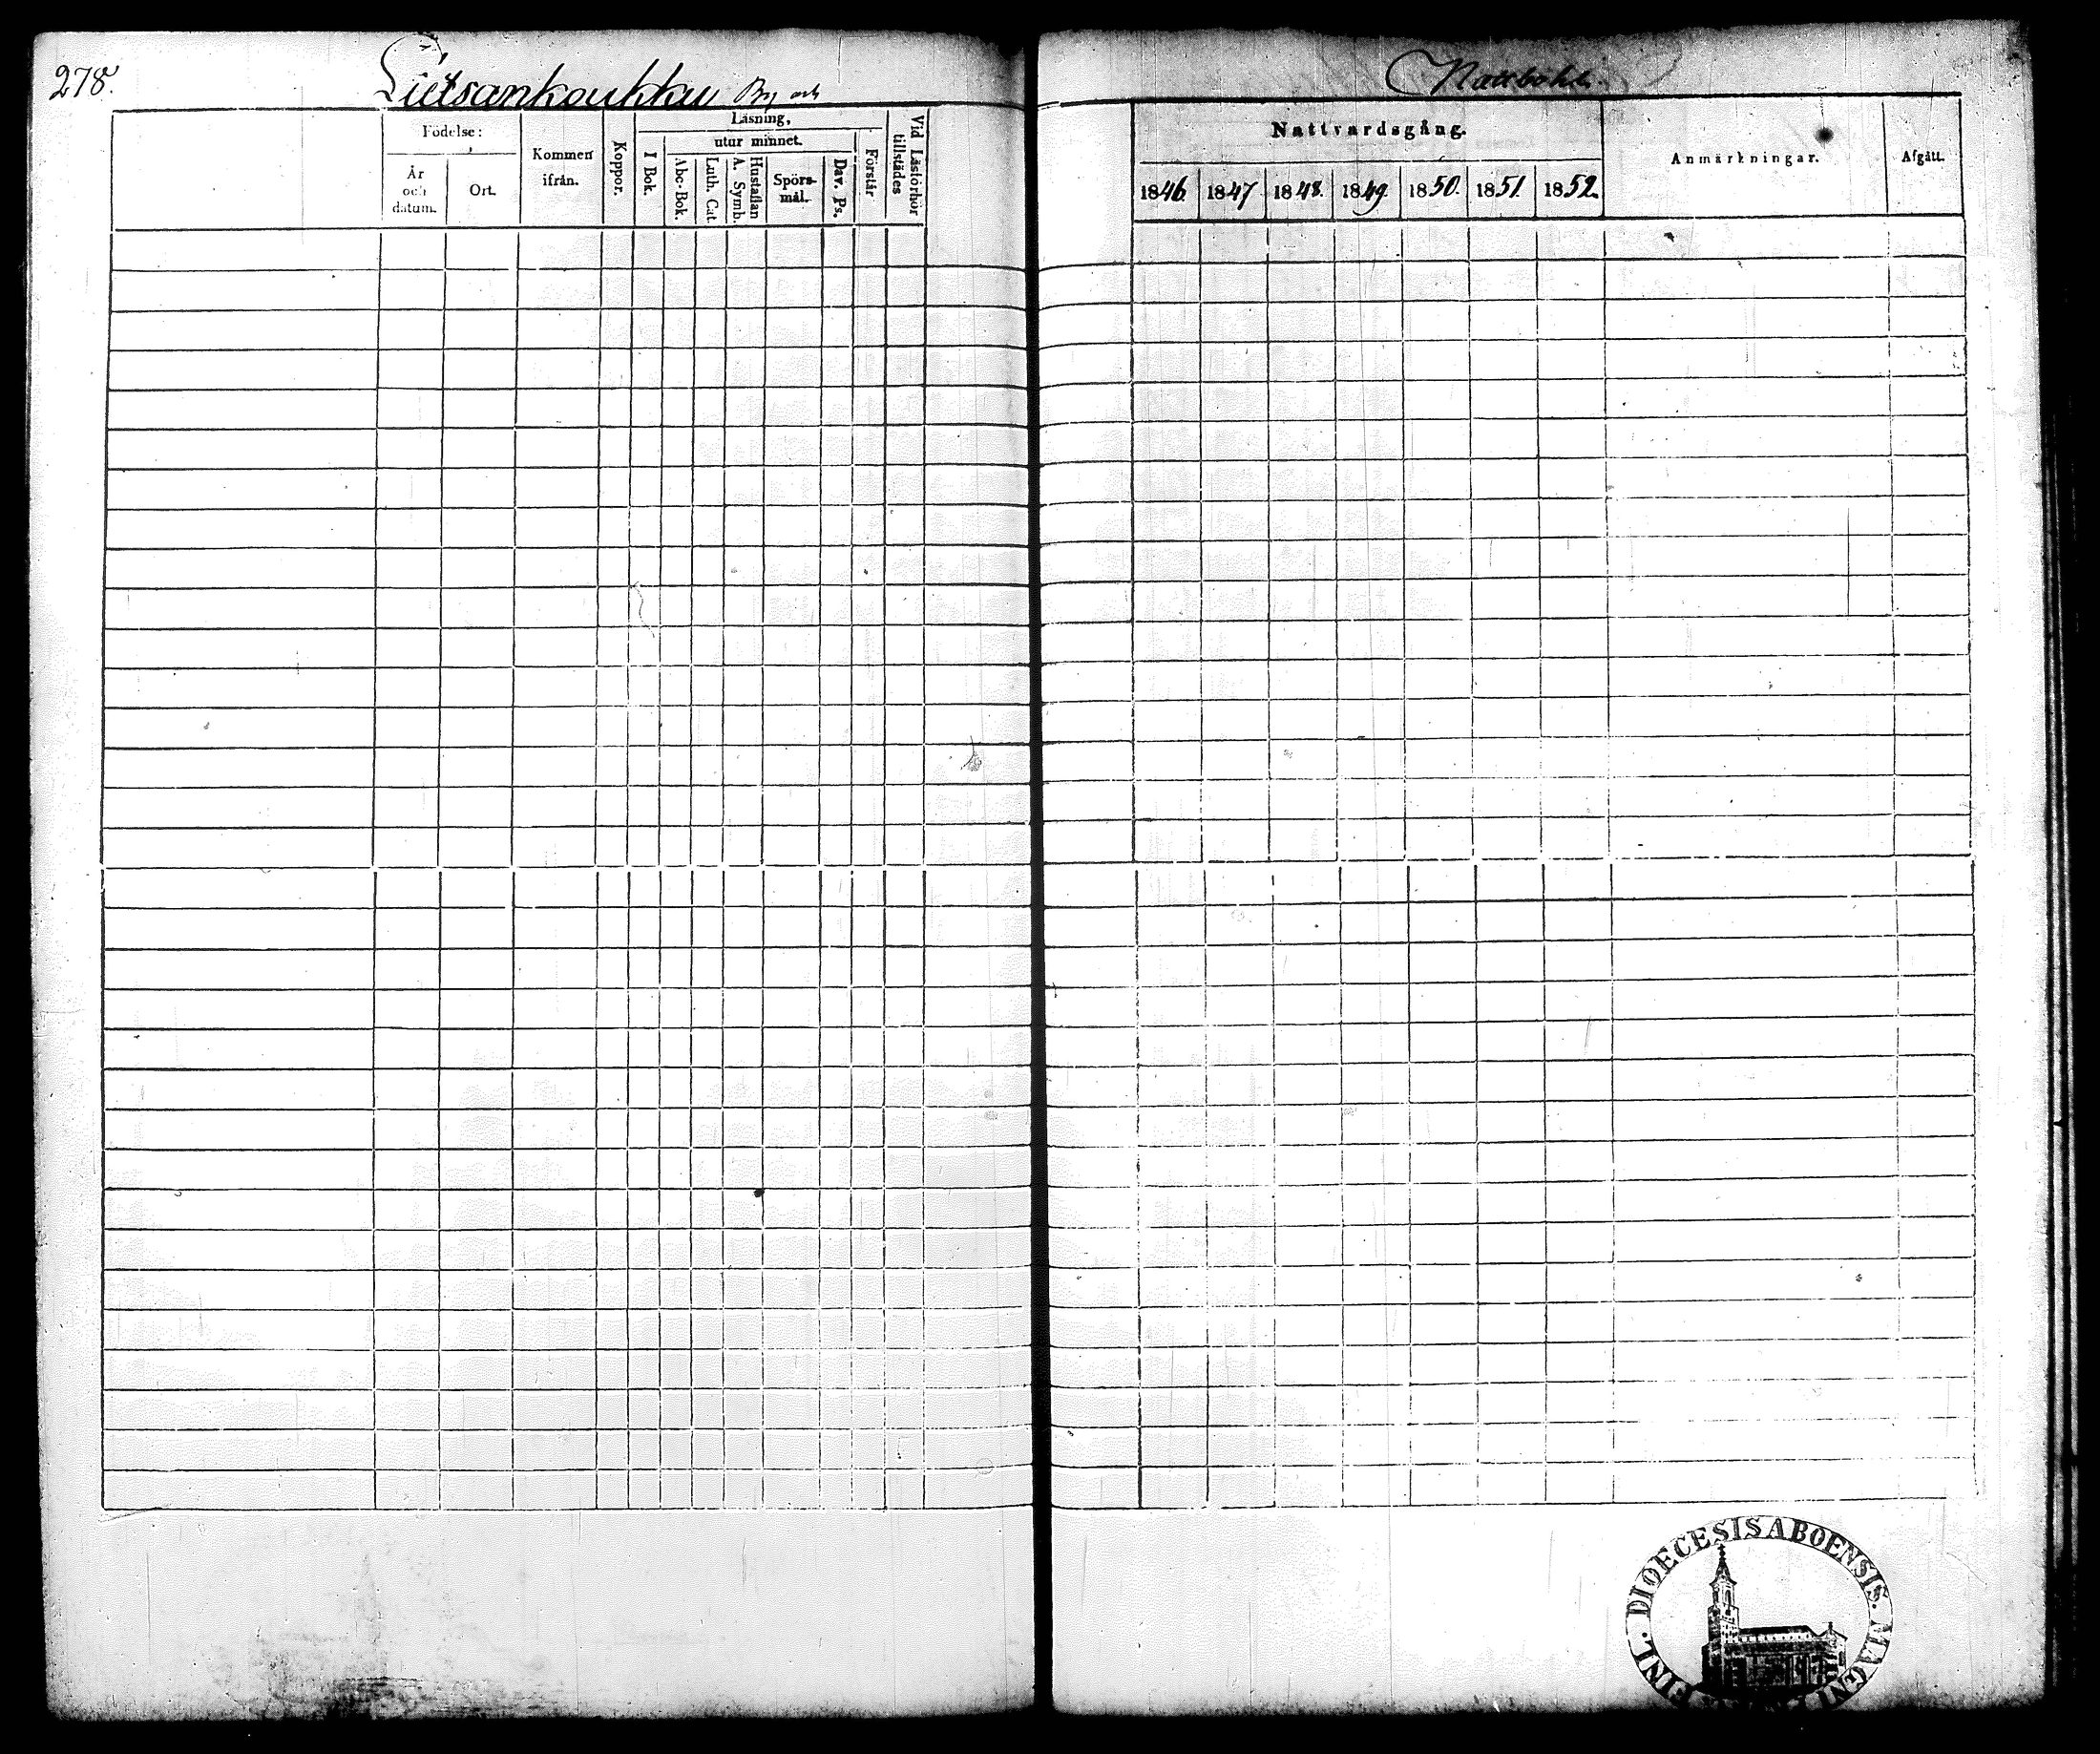 278.
Lietsankoukku By och
Nattböhle.
Födelse:
År och datum.
Ort.
Kommen ifrån.
Koppor.
Läsning,
I Bok.
utur minnet.
Abc-Bok.
Luth. Cat.
Hustaflan A. Symb.
Spörs-mål.
Dav. Ps.
Förstår
Vid Läsförhör tillstädes
Nattvardsgång.
1846. 1847 1848. 1849. 1850. 1851. 1852.
Anmärkningar.
Afgått.
DIOECESIS ABOENSIS. MAGNI FINL.